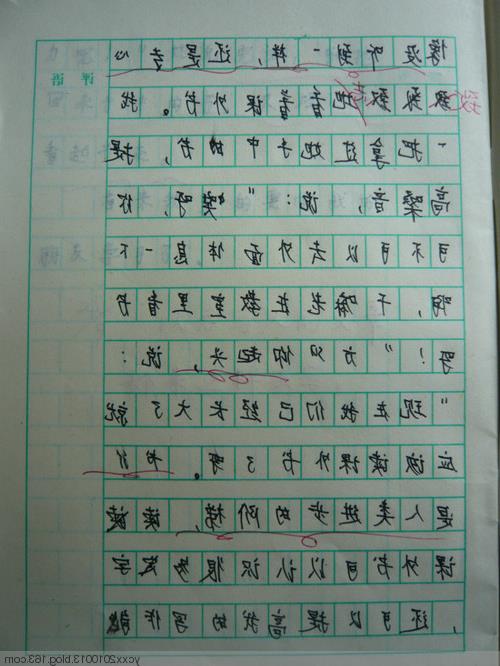 评语
像没听到一样，还是专心
致致地看着课外书。我
一把拿过她手中的书，提
高嗓音，说：“喂，你
可不可以去外面休息一下
呢，干嘛老在教室里看书
呢！”方又抬起头，说：
“现在我们已经长大了就
应该读课外书了呀。书
是人类进步的阶梯，读读
课外书可以认识很多字
，还可以提高我的写作能
ycxx20100013.blog.163.com